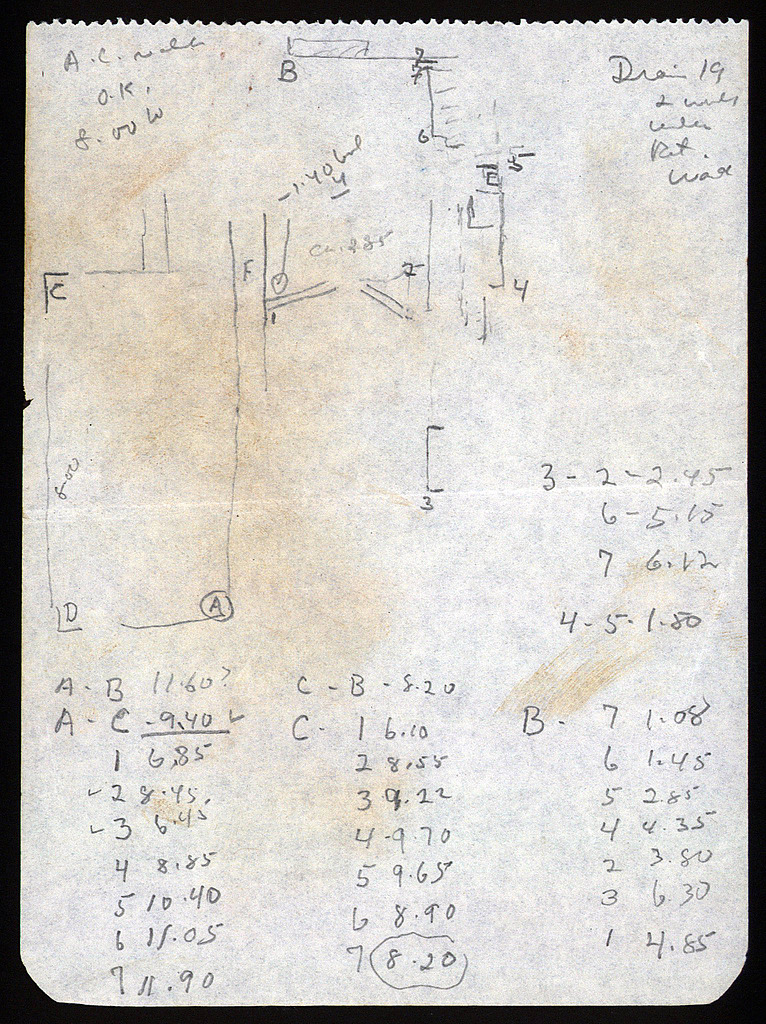 A.C. walls
O.K.
8.00 W
B
7
6
Drain 19
2 walls
under
Ret.
wall
5
E
1.40
4
F
2
C
1
4
3
8.00
D
A
3 - 2 - 2.45
6 - 5.15
7 6.12
4 - 5 - 1.80
A - B 11.60?
A - C - 9.40
1 6.85
2 8.45
3 6.45
4 8.85
5 10.40
6 11.05
7 11.90
C - B - 8.20
C - 1 6.10
2 8.55
3 9.22
4 - 9.70
5 9.65
6 8.90
7 8.20
B - 7 1.08
6 1.45
5 2.85
4 4.35
2 3.80
3 6.30
1 4.85